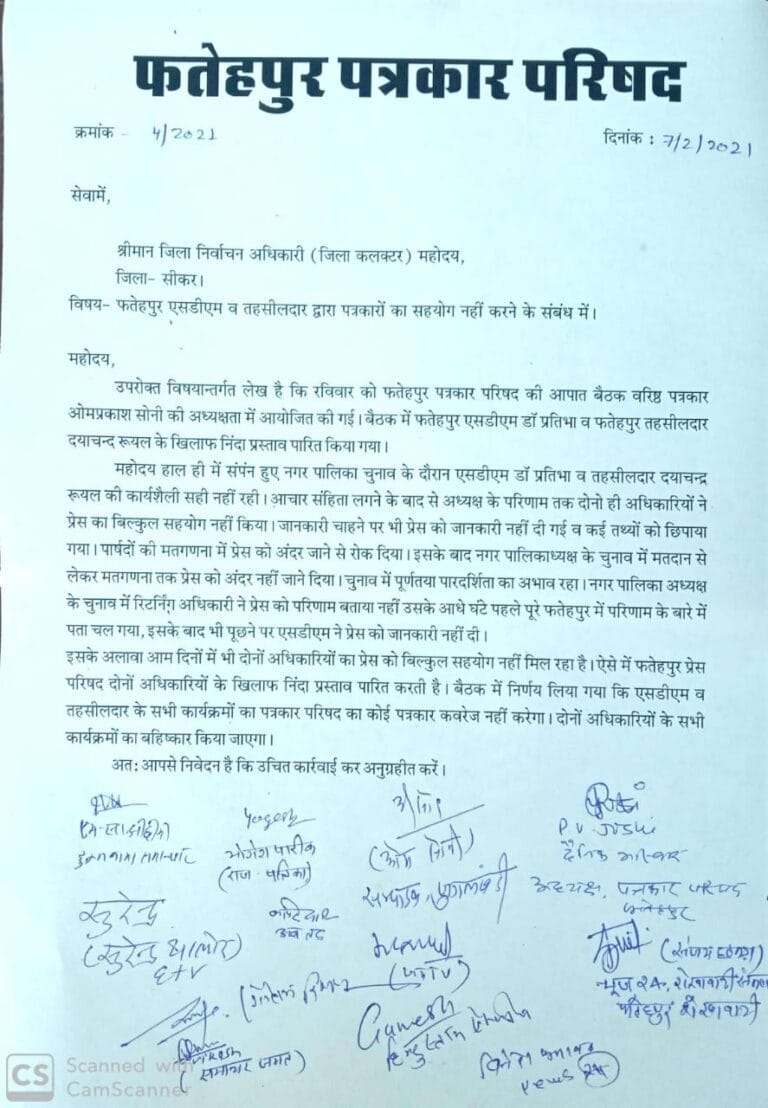 फतेहपुर पत्रकार परिषद
क्रमांक - 4/2021 दिनांक : 7/2/2021
सेवामें,
श्रीमान जिला निर्वाचन अधिकारी (जिला कलक्टर) महोदय,
जिला- सीकर।
विषय- फतेहपुर एसडीएम व तहसीलदार द्वारा पत्रकारों का सहयोग नहीं करने के संबंध में।
महोदय,
उपरोक्त विषयान्तर्गत लेख है कि रविवार को फतेहपुर पत्रकार परिषद की आपात बैठक वरिष्ठ पत्रकार
ओमप्रकाश सोनी की अध्यक्षता में आयोजित की गई। बैठक में फतेहपुर एसडीएम डॉ प्रतिभा व फतेहपुर तहसीलदार
दयाचन्द रूयल के खिलाफ निंदा प्रस्ताव पारित किया गया।
महोदय हाल ही में संपंन हुए नगर पालिका चुनाव के दौरान एसडीएम डॉ प्रतिभा व तहसीलदार दयाचन्द्र
रूयल की कार्यशैली सही नहीं रही। आचार संहिता लगने के बाद से अध्यक्ष के परिणाम तक दोनो ही अधिकारियों ने
प्रेस का बिल्कुल सहयोग नहीं किया। जानकारी चाहने पर भी प्रेस को जानकारी नहीं दी गई व कई तथ्यों को छिपाया
गया। पार्षदों की मतगणना में प्रेस को अंदर जाने से रोक दिया। इसके बाद नगर पालिकाध्यक्ष के चुनाव में मतदान से
लेकर मतगणना तक प्रेस को अंदर नहीं जाने दिया। चुनाव में पूर्णतया पारदर्शिता का अभाव रहा। नगर पालिका अध्यक्ष
के चुनाव में रिटर्निंग अधिकारी ने प्रेस को परिणाम बताया नहीं उसके आधे घंटे पहले पूरे फतेहपुर में परिणाम के बारे में
पता चल गया, इसके बाद भी पूछने पर एसडीएम ने प्रेस को जानकारी नहीं दी।
इसके अलावा आम दिनों में भी दोनों अधिकारियों का प्रेस को बिल्कुल सहयोग नहीं मिल रहा है। ऐसे में फतेहपुर प्रेस
परिषद दोनों अधिकारियों के खिलाफ निंदा प्रस्ताव पारित करती है। बैठक में निर्णय लिया गया कि एसडीएम व
तहसीलदार के सभी कार्यक्रमों का पत्रकार परिषद का कोई पत्रकार कवरेज नहीं करेगा। दोनों अधिकारियों के सभी
कार्यक्रमों का बहिष्कार किया जाएगा।
अत: आपसे निवेदन है कि उचित कार्रवाई कर अनुग्रहीत करें।
Yogesh
योगेश पारीक
(राज. पत्रिका)
P.V. JOSHI
दैनिक भास्कर
अध्यक्ष, पत्रकार परिषद
फतेहपुर
सुरेन्द्र
(सुरेन्द्र
ETV
न्यूज 24,
Ganesh
(समाचार जगत)
news 24
CS Scanned with
CamScanner